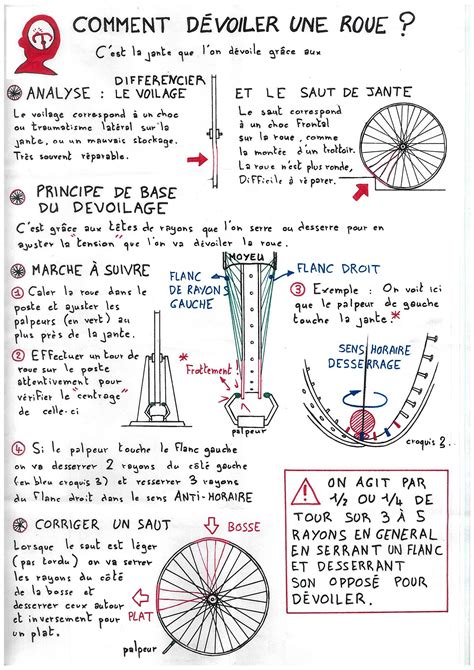 COMMENT DÉVOILER UNE ROUE ?
C'est la jante que l'on dévoile grâce aux
DIFFERENCIER
ANALYSE : LE VOILAGE
ET LE SAUT DE JANTE
Le voilage correspond à un choc
ou traumatisme latéral sur la
jante, ou un mauvais stockage.
Très souvent réparable.
Le saut correspond
à un choc Frontal
sur la roue, comme
la montée d'un trottoir.
La roue n'est plus ronde,
Difficile à réparer.
PRINCIPE DE BASE
DU DEVOILAGE
C'est grâce aux têtes de rayons que l'on serre ou desserre pour en
ajuster la "tension" que l'on va dévoiler la roue.
MARCHE À SUIVRE
① Caler la roue dans le
poste et ajuster les
palpeurs (en vert) au
plus près de la jante.
② Effectuer un tour de
roue sur le poste
attentivement pour
vérifier le "centrage"
de celle-ci
MOYEU
FLANC
DE RAYONS
GAUCHE
FLANC DROIT
* Frottement!
palpeur
③ Exemple : On voit ici
que le palpeur de gauche
touche la jante.*
SENS HORAIRE
DESSERRAGE
croquis 3.
④ Si le palpeur touche le Flanc gauche
on va desserrer 2 rayons du côté gauche
(en bleu croquis 3) et resserrer 3 rayons
du Flanc droit dans le sens ANTI-HORAIRE
! ON AGIT PAR
1/2 OU 1/4 DE
TOUR SUR 3 À 5
RAYONS EN GENERAL
EN SERRANT UN FLANC
ET DESSERRANT
SON OPPOSÉ POUR
DÉVOILER.
CORRIGER UN SAUT
Lorsque le saut est léger
(pas tordu) on va serrer
les rayons du côté
de la bosse et
desserrer ceux autour
et inversement pour
un plat.
BOSSE
PLAT
palpeur